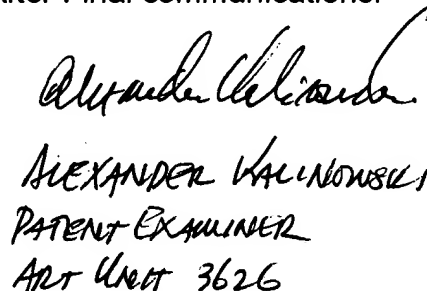 Final communications.
Alexander Kalinowski
ALEXANDER KALINOWSKI
PATENT EXAMINER
ART UNIT 3626